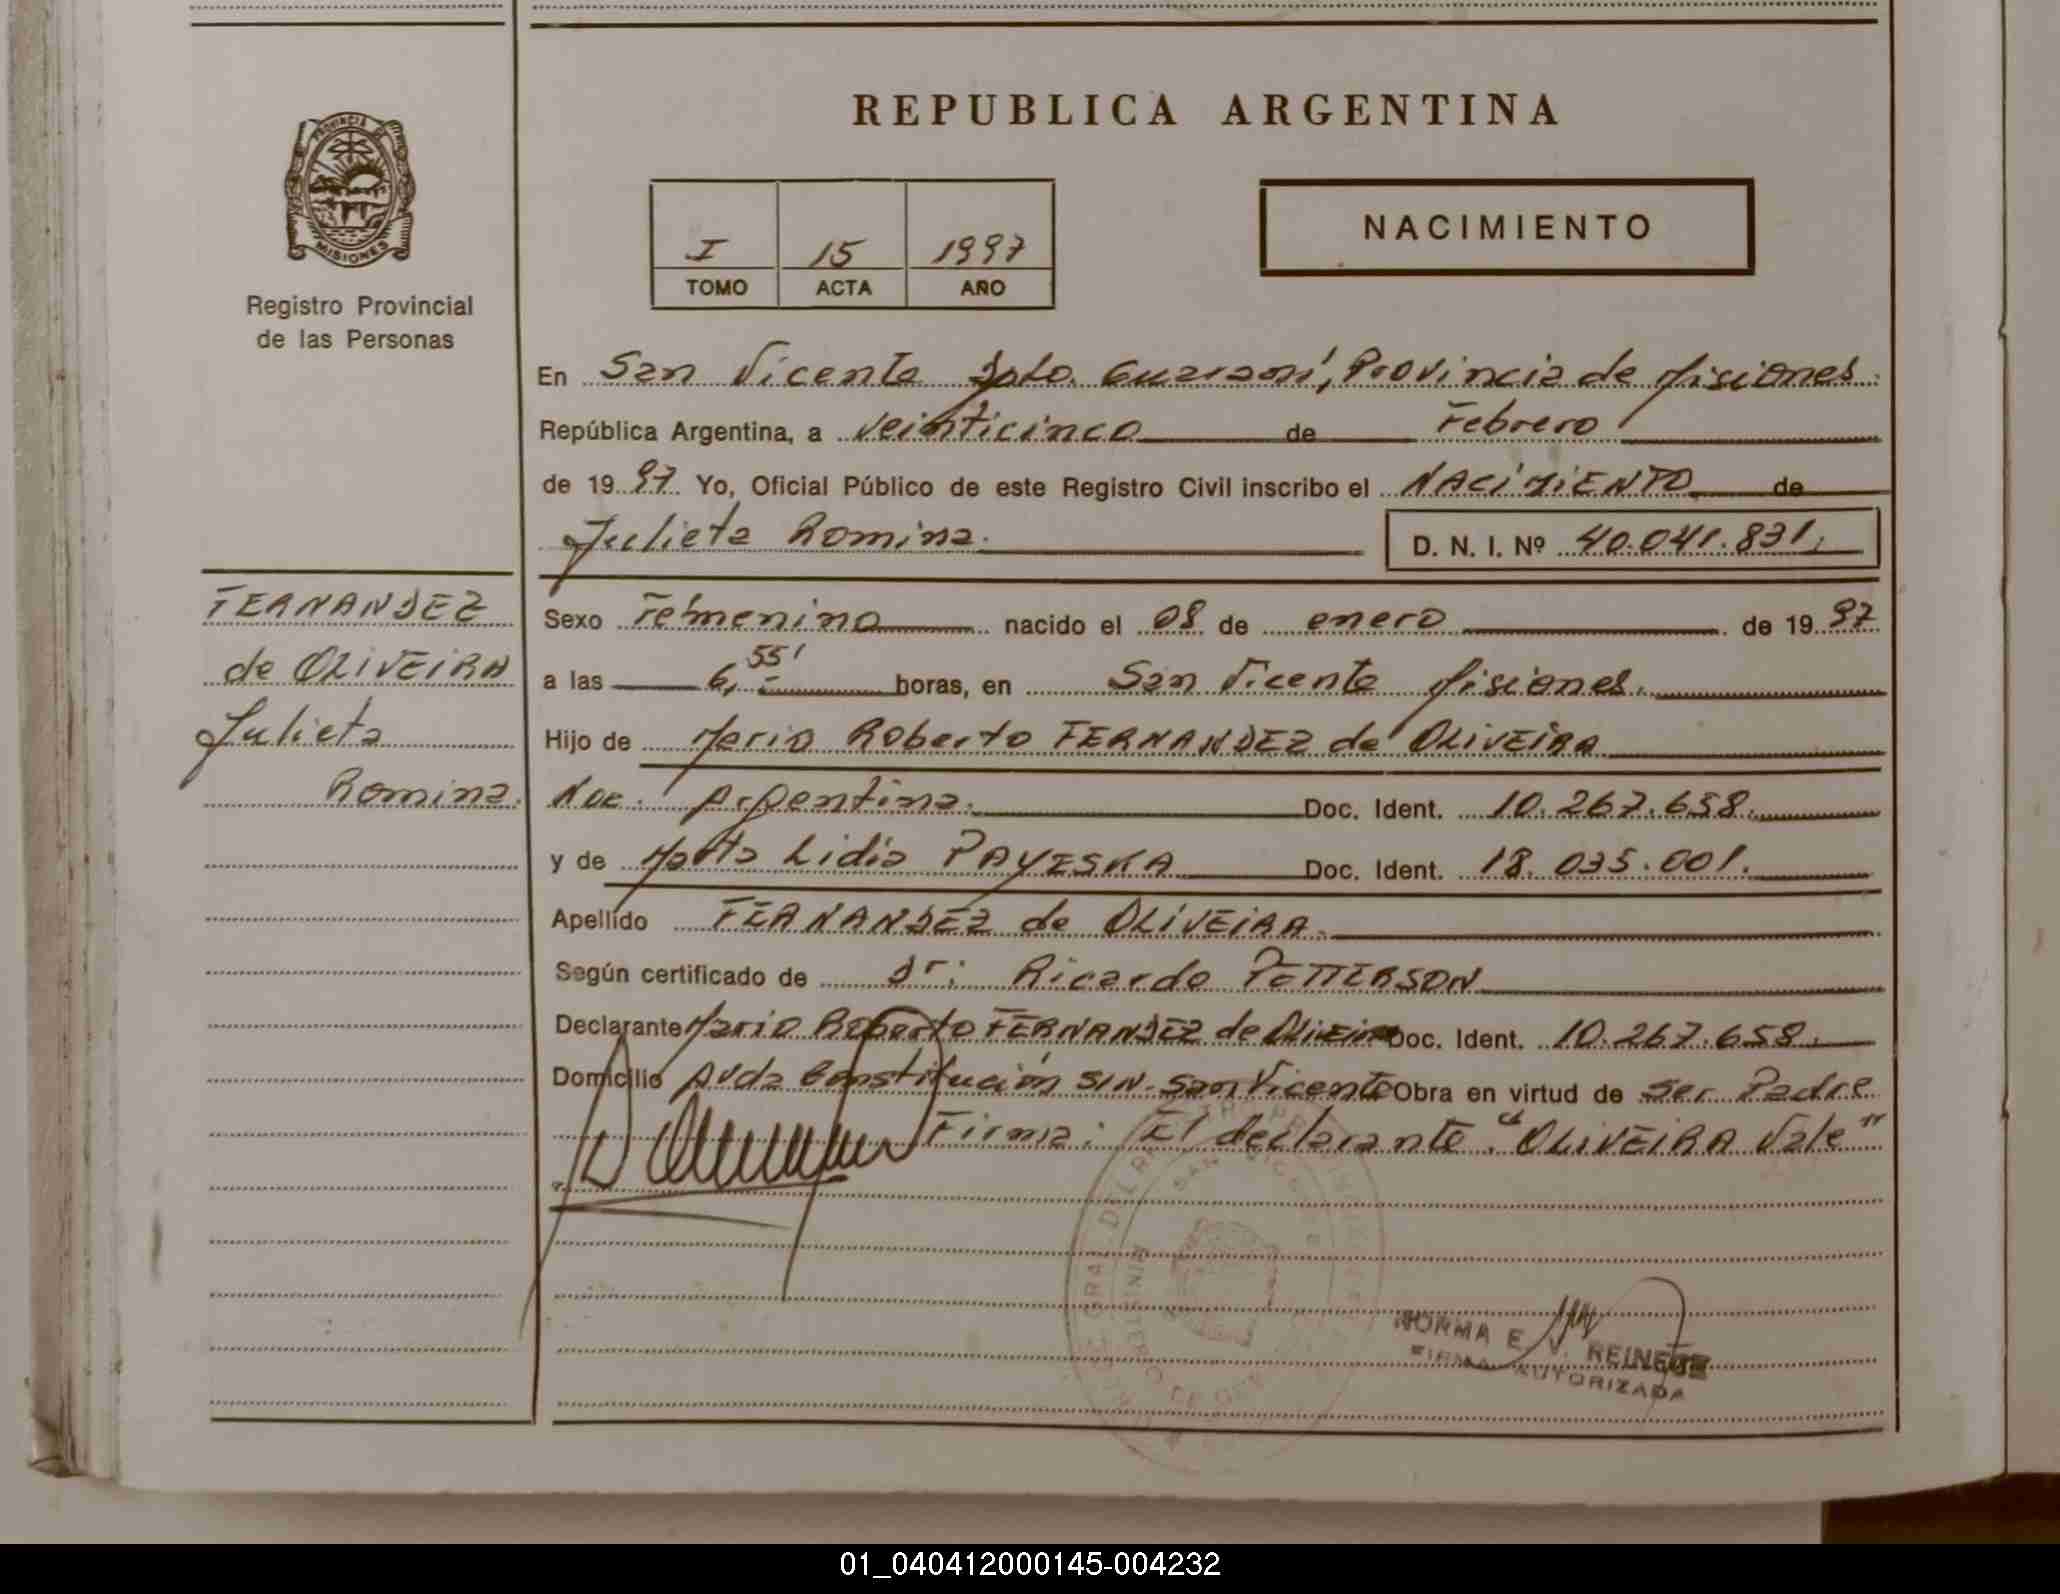 REPUBLICA ARGENTINA
PROVINCIA DE
MISIONES
Registro Provincial
de las Personas
I 15 1997
TOMO ACTA AÑO
NACIMIENTO
En San Vicente Dpto. Guaraní, Provincia de Misiones.
República Argentina, a veinticinco de Febrero
de 1997 Yo, Oficial Público de este Registro Civil inscribo el NACIMIENTO de
Julieta Romina. D. N. I. Nº 40.041.831.
FERNANDEZ
de OLIVEIRA
Julieta
Romina.
Sexo Femenino nacido el 08 de enero de 1997
a las 6,55' horas, en San Vicente Misiones.
Hijo de Mario Roberto FERNANDEZ de OLIVEIRA
Nac. Argentina. Doc. Ident. 10.267.658.
y de Marta Lidia PAYESKA Doc. Ident. 18.035.001.
Apellido FERNANDEZ de OLIVEIRA.
Según certificado de Dr: Ricardo PETTERSON
Declarante Mario Roberto FERNANDEZ de Oliveira Doc. Ident. 10.267.658.
Domicilio Avda Constitución S/N. San Vicente Obra en virtud de ser Padre
Firma: El declarante "OLIVEIRA Vale"
NORMA E. V. REINEKE
FIRMA AUTORIZADA
01_040412000145-004232